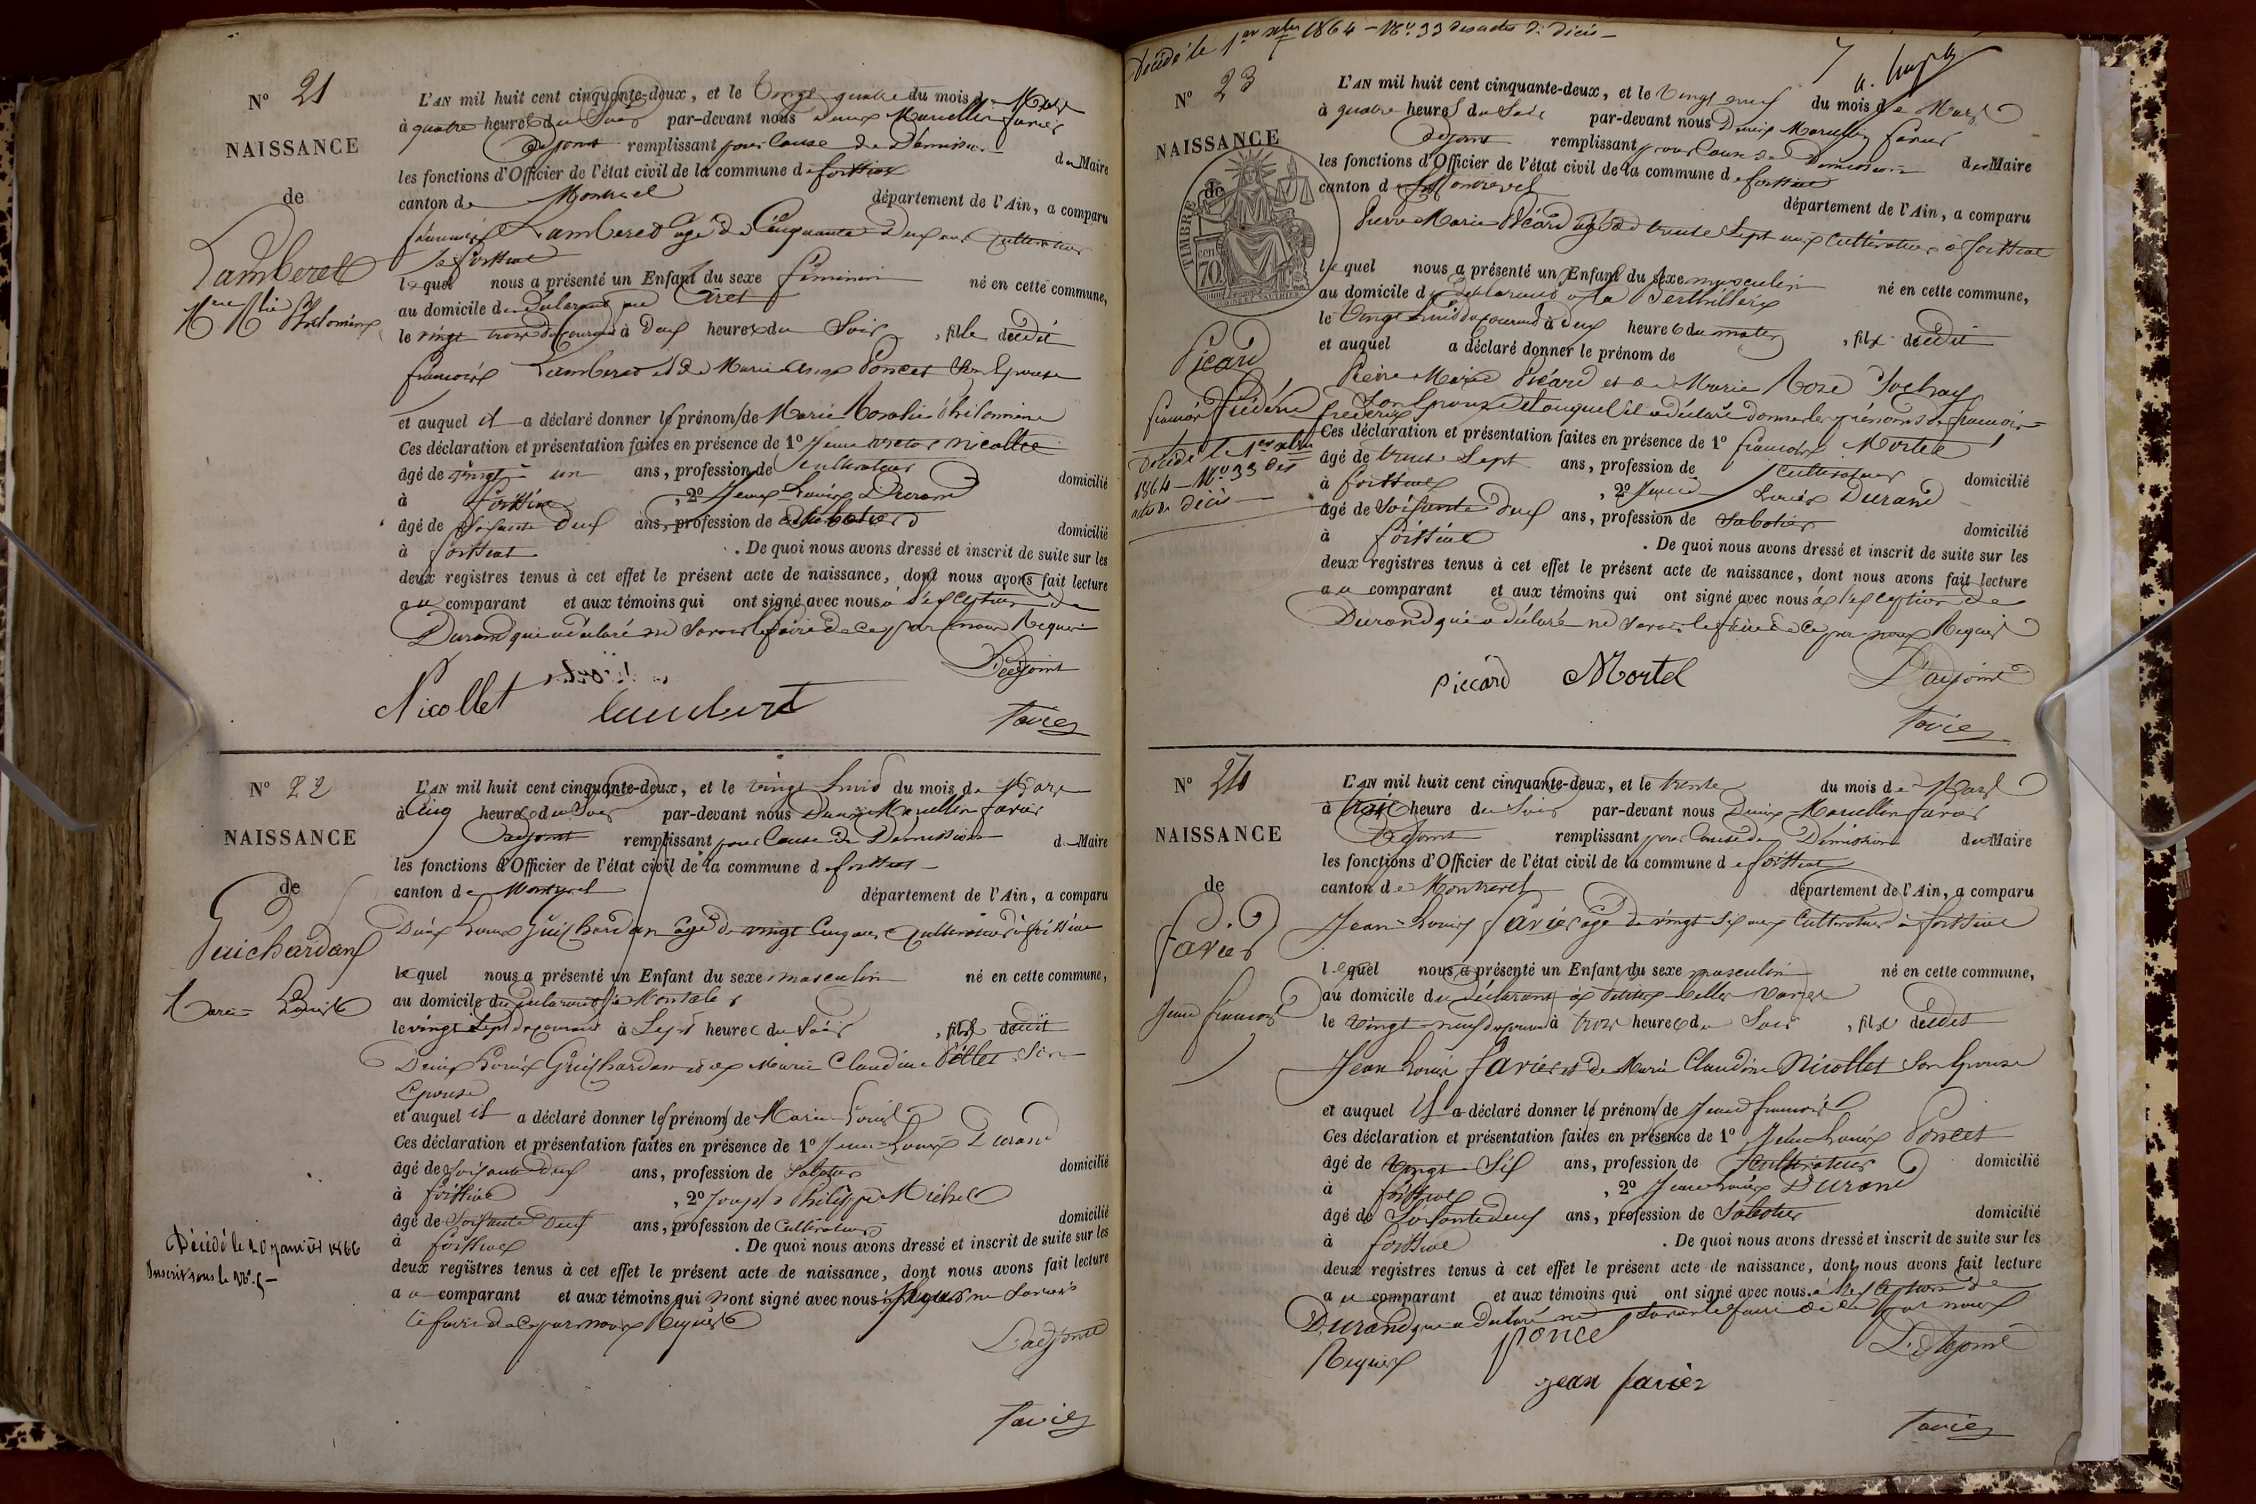 N° 21
NAISSANCE
de
Lamberet
Marie Philomène
L'AN mil huit cent cinquante-deux, et le Vingt quatre du mois de Mars
à quatre heures du Soir par-devant nous Denis Marcellin favier
adjoint remplissant pour Cause de Démission du Maire
les fonctions d'Officier de l'état civil de la commune de foissiat
canton de Montrevel département de l'Ain, a comparu
françois Lamberet agé de Cinquante Deux ans Cultivateur
à foissiat
lequel nous a présenté un Enfant du sexe féminin né en cette commune,
au domicile du Déclarant au
le vingt trois du Courant à Deux heures du Soir, fille dudit
françois Lamberet et de Marie Poncet Son Epouse
et auquel il a déclaré donner les prénoms de Marie Rosalie Philomène
Ces déclaration et présentation faites en présence de 1° Nicollet
âgé de vingt-un ans, profession de Cultivateur domicilié
à foissiat, 2° Jean-Louis Durand
âgé de Soixante Deux ans, profession de Sabotier domicilié
à foissiat. De quoi nous avons dressé et inscrit de suite sur les
deux registres tenus à cet effet le présent acte de naissance, dont nous avons fait lecture
au comparant et aux témoins qui ont signé avec nous à l'exception de
Durand qui a déclaré ne Savoir le faire de ce par nous Requis
L'adjoint
Nicollet lambert
favier
N° 22
NAISSANCE
de
Guichardan
Marie-Louis
Décédé le 20 janvier 1866
Inscrit sous le N° 5
L'AN mil huit cent cinquante-deux, et le vingt huit du mois de Mars
à Cinq heures du Soir par-devant nous Denis Marcellin favier
adjoint remplissant pour Cause de Démission du Maire
les fonctions d'Officier de l'état civil de la commune de foissiat
canton de Montrevel département de l'Ain, a comparu
Denis Louis Guichardan agé de vingt Cinq ans Cultivateur à foissiat
lequel nous a présenté un Enfant du sexe masculin né en cette commune,
au domicile du Déclarant à
le vingt Sept du courant à Sept heures du Soir, fils dudit
Denis Louis Guichardan et de Marie Claudine Pillet Son
Epouse
et auquel il a déclaré donner les prénoms de Marie-Louis
Ces déclaration et présentation faites en présence de 1° Jean-Louis Durand
âgé de Soixante Deux ans, profession de Sabotier domicilié
à foissiat, 2° Joseph Philippe Michel
âgé de Soixante Deux ans, profession de Cultivateur domicilié
à foissiat. De quoi nous avons dressé et inscrit de suite sur les
deux registres tenus à cet effet le présent acte de naissance, dont nous avons fait lecture
au comparant et aux témoins qui n'ont signé avec nous ne Savoir
le faire de ce par nous Requis
L'adjoint
favier
Décédé le 1er xbre 1864 - N° 33 des actes de décès
7
N° 23
NAISSANCE
de
TIMBRE
70
Picard
françois frédéric
Décédé le 1er xbre
1864 - N° 33 des
actes de décès
L'AN mil huit cent cinquante-deux, et le Vingt neuf du mois de Mars
à quatre heures du Soir par-devant nous Denis Marcellin favier
adjoint remplissant pour Cause de Démission du Maire
les fonctions d'Officier de l'état civil de la commune de foissiat
canton de Montrevel département de l'Ain, a comparu
Pierre Marie Picard agé de trente Sept ans Cultivateur à foissiat
lequel nous a présenté un Enfant du sexe masculin né en cette commune,
au domicile du Déclarant à la
le Vingt huit du courant à Deux heures du matin, fils dudit
et auquel a déclaré donner le prénom de
Pierre Marie Picard et de Marie Rose Pochay
Son Epouse et auquel il a déclaré donner les prénoms de françois-
frédéric
Ces déclaration et présentation faites en présence de 1° françois Mortel
âgé de trente Sept ans, profession de Cultivateur domicilié
à foissiat, 2° Jean-Louis Durand
âgé de Soixante Deux ans, profession de Sabotier domicilié
à foissiat. De quoi nous avons dressé et inscrit de suite sur les
deux registres tenus à cet effet le présent acte de naissance, dont nous avons fait lecture
au comparant et aux témoins qui ont signé avec nous à l'exception de
Durand qui a déclaré ne Savoir le faire de ce par nous Requis
piccard Mortel L'adjoint
favier
N° 24
NAISSANCE
de
favier
Jean françois
L'AN mil huit cent cinquante-deux, et le trente du mois de Mars
à heure du Soir par-devant nous Denis Marcellin favier
adjoint remplissant pour Cause de Démission du Maire
les fonctions d'Officier de l'état civil de la commune de foissiat
canton de Montrevel département de l'Ain, a comparu
Jean-Louis favier agé de vingt Six ans Cultivateur à foissiat
lequel nous a présenté un Enfant du sexe masculin né en cette commune,
au domicile du Déclarant à
le Vingt-neuf du courant à trois heures du Soir, fils dudit
Jean Louis favier et de Marie Claudine Nicollet Son Epouse
et auquel il a déclaré donner les prénoms de Jean françois
Ces déclaration et présentation faites en présence de 1° Jean Louis Poncet
âgé de Vingt-Six ans, profession de Cultivateur domicilié
à foissiat, 2° Jean Louis Durand
âgé de Soixante deux ans, profession de Sabotier domicilié
à foissiat. De quoi nous avons dressé et inscrit de suite sur les
deux registres tenus à cet effet le présent acte de naissance, dont nous avons fait lecture
au comparant et aux témoins qui ont signé avec nous à l'exception de
Durand qui a déclaré ne Savoir le faire de ce par nous
Requis ponce L'adjoint
jean favier
favier